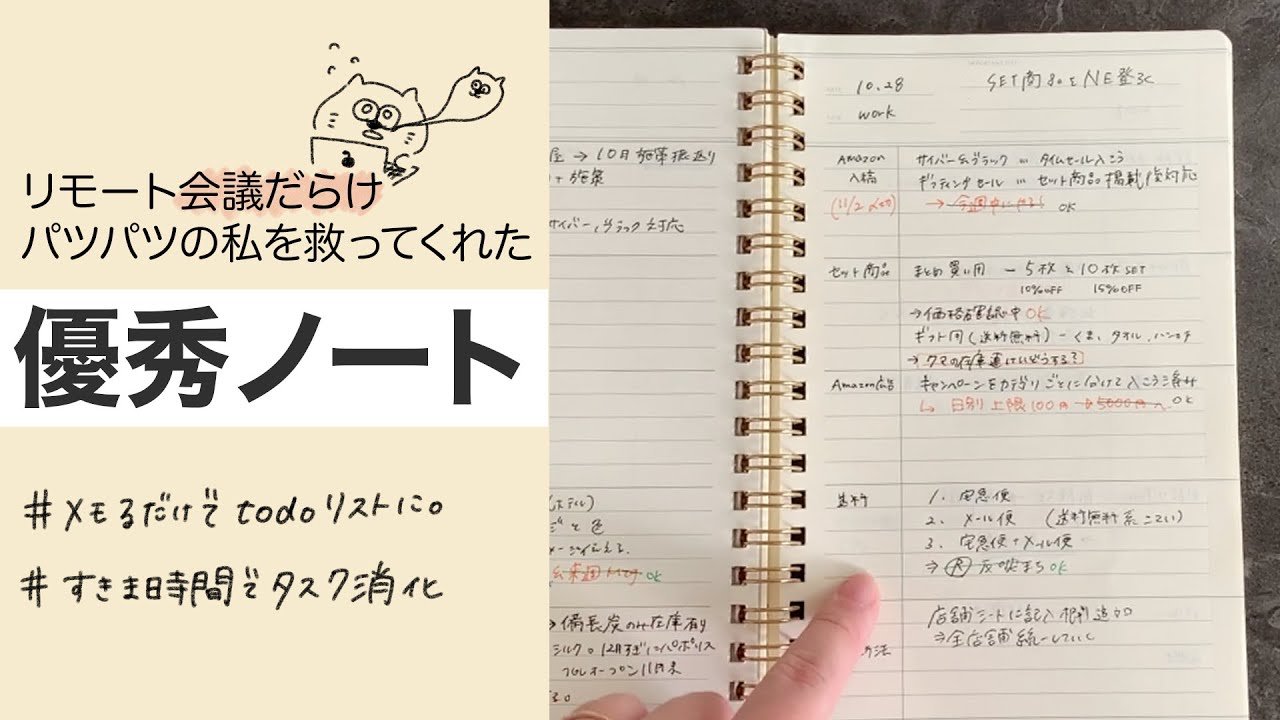 リモート会議だらけ
パツパツの私を救ってくれた
優秀ノート
#メモるだけでtodoリストに。
#すきま時間でタスク消化
屋 → 10月施策振返り
+ 施策
サイバー&ブラック対応
(ホテル)
と色
OK
備長炭のみ在庫有り
シルク。12月すぎにパポリス
フルオープン11月末
10.28
work
SET商品とNE登録
Amazon サイバー&ブラック … タイムセール入こう
入稿 ギフティングセール … セット商品掲載後対応
(11/2〆切) → 今週中にやる! OK
セット商品 まとめ買い用 - 5枚と10枚SET
10%OFF 15%OFF
→価格確認中 OK
ギフト用(送料無料) - くま、タオル、ハンカチ
→クマの在庫運びどうする?
Amazon広告 キャンペーンをカテゴリごとに分けて入こう済み
↳ 日別上限100円 → 5000円へ OK
送料 1. 宅急便
2. メール便 (送料無料系こてい)
3. 宅急便+メール便
⇒ 反映まち OK
店舗シートに記入 追加
⇒全店舗統一していく
方法